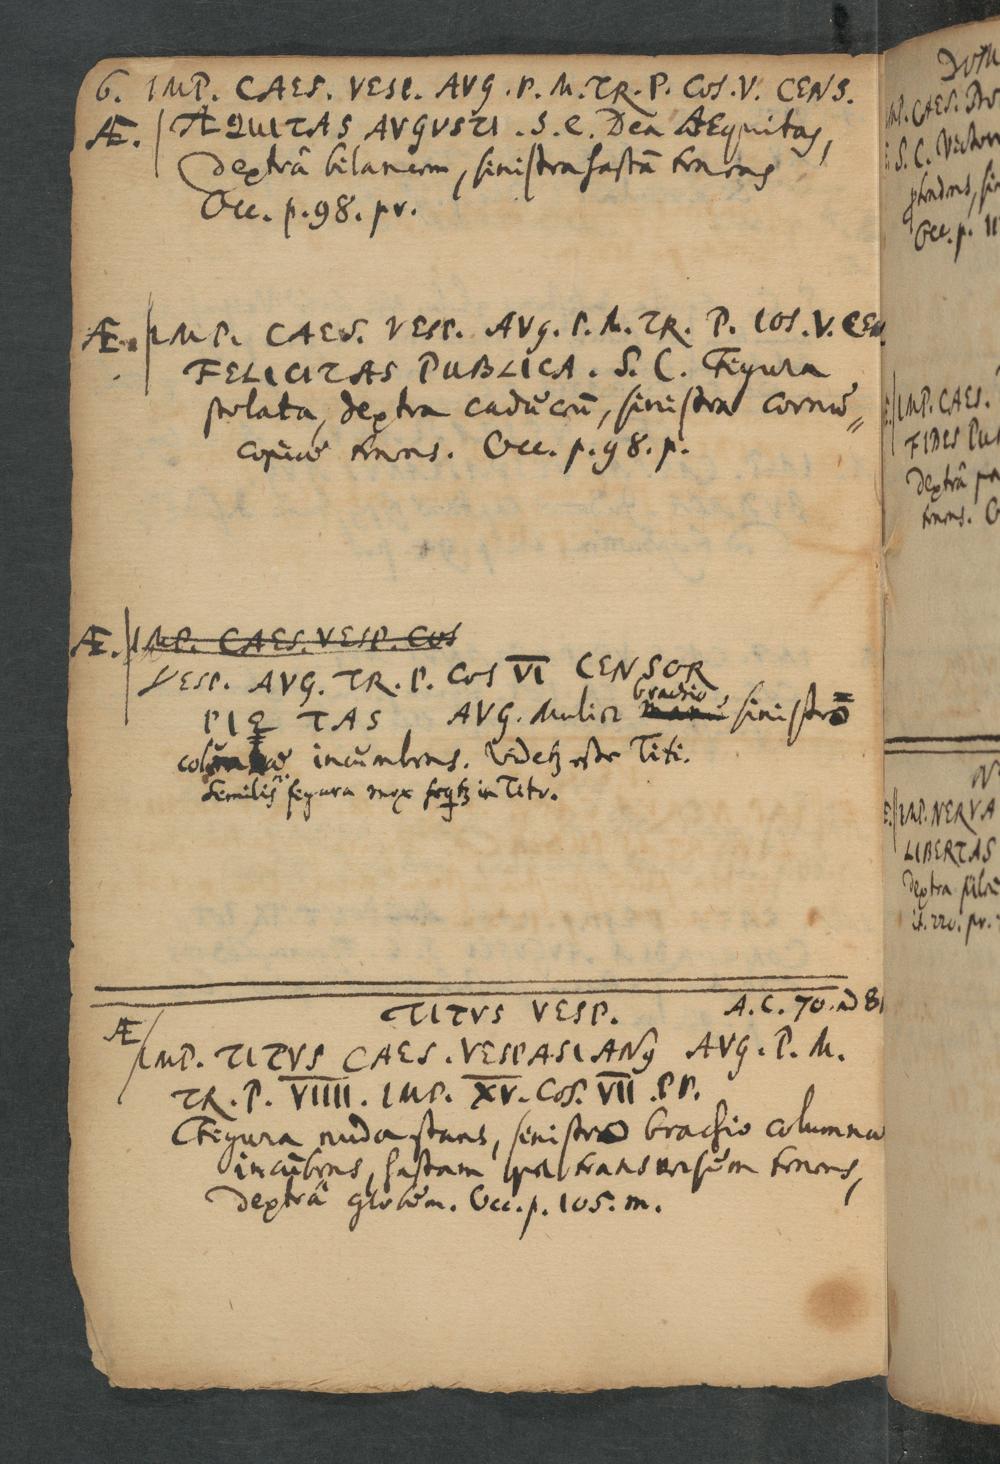 6. IMP. CAES. VESP. AVG. P. M. TR. P. COS. V. CENS.
Æ. ÆQUITAS AVGVSTI. S. C. Dea AEquitas,
dextrâ bilancem, sinistra hastã tenens
Occ. p. 98. pr.
Æ. IMP. CAES. VESP. AVG. P. M. TR. P. COS. V. CEN
FELICITAS PUBLICA. S. C. Figura
stolata, dextra caduceũ, sinistra cornu
copiæ tenens. Occ. p. 98. p.
Æ. IMP. CAES. VESP. COS
VESP. AVG. TR. P. COS VI CENSOR
brachio
PIETAS AVG. Mulier sinistro
incumbens. Videtʒ esse Titi.
Similis figura mox in Tito.
TITVS VESP. A. C. 70. ad 81
Æ IMP. TITVS CAES. VESPASIANꝰ AVG. P. M.
TR. P. VIIII. IMP. XV. COS. VII. PP.
Figura nuda stans, sinistro brachio columnæ
incũbens, hastam transversum tenens,
dextrâ globum. Occ. p. 105. m.
IMP. CAES.
S. C.
Occ. p. 11
IMP. CAES.
FIDES PU
dextrâ
tenens.
IMP. NERVA
LIBERTAS
dextra